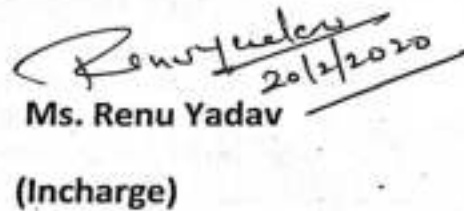 Renuyadav
20/2/2020
Ms. Renu Yadav
(Incharge)